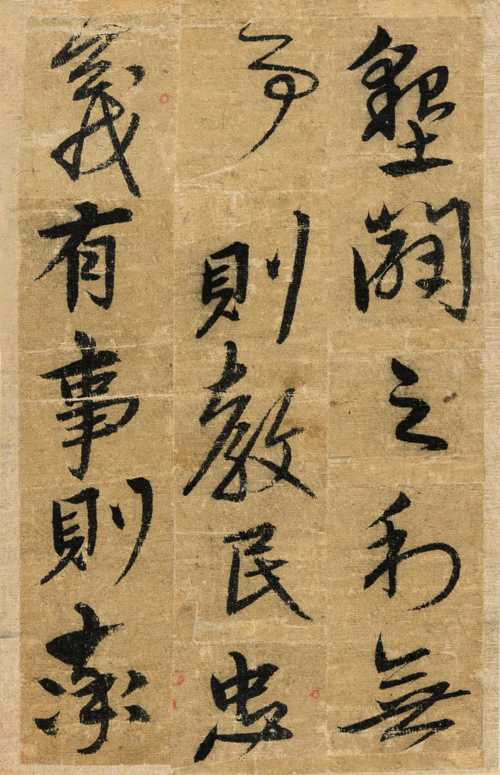 墾闢之利無
事則教民忠
義有事則率